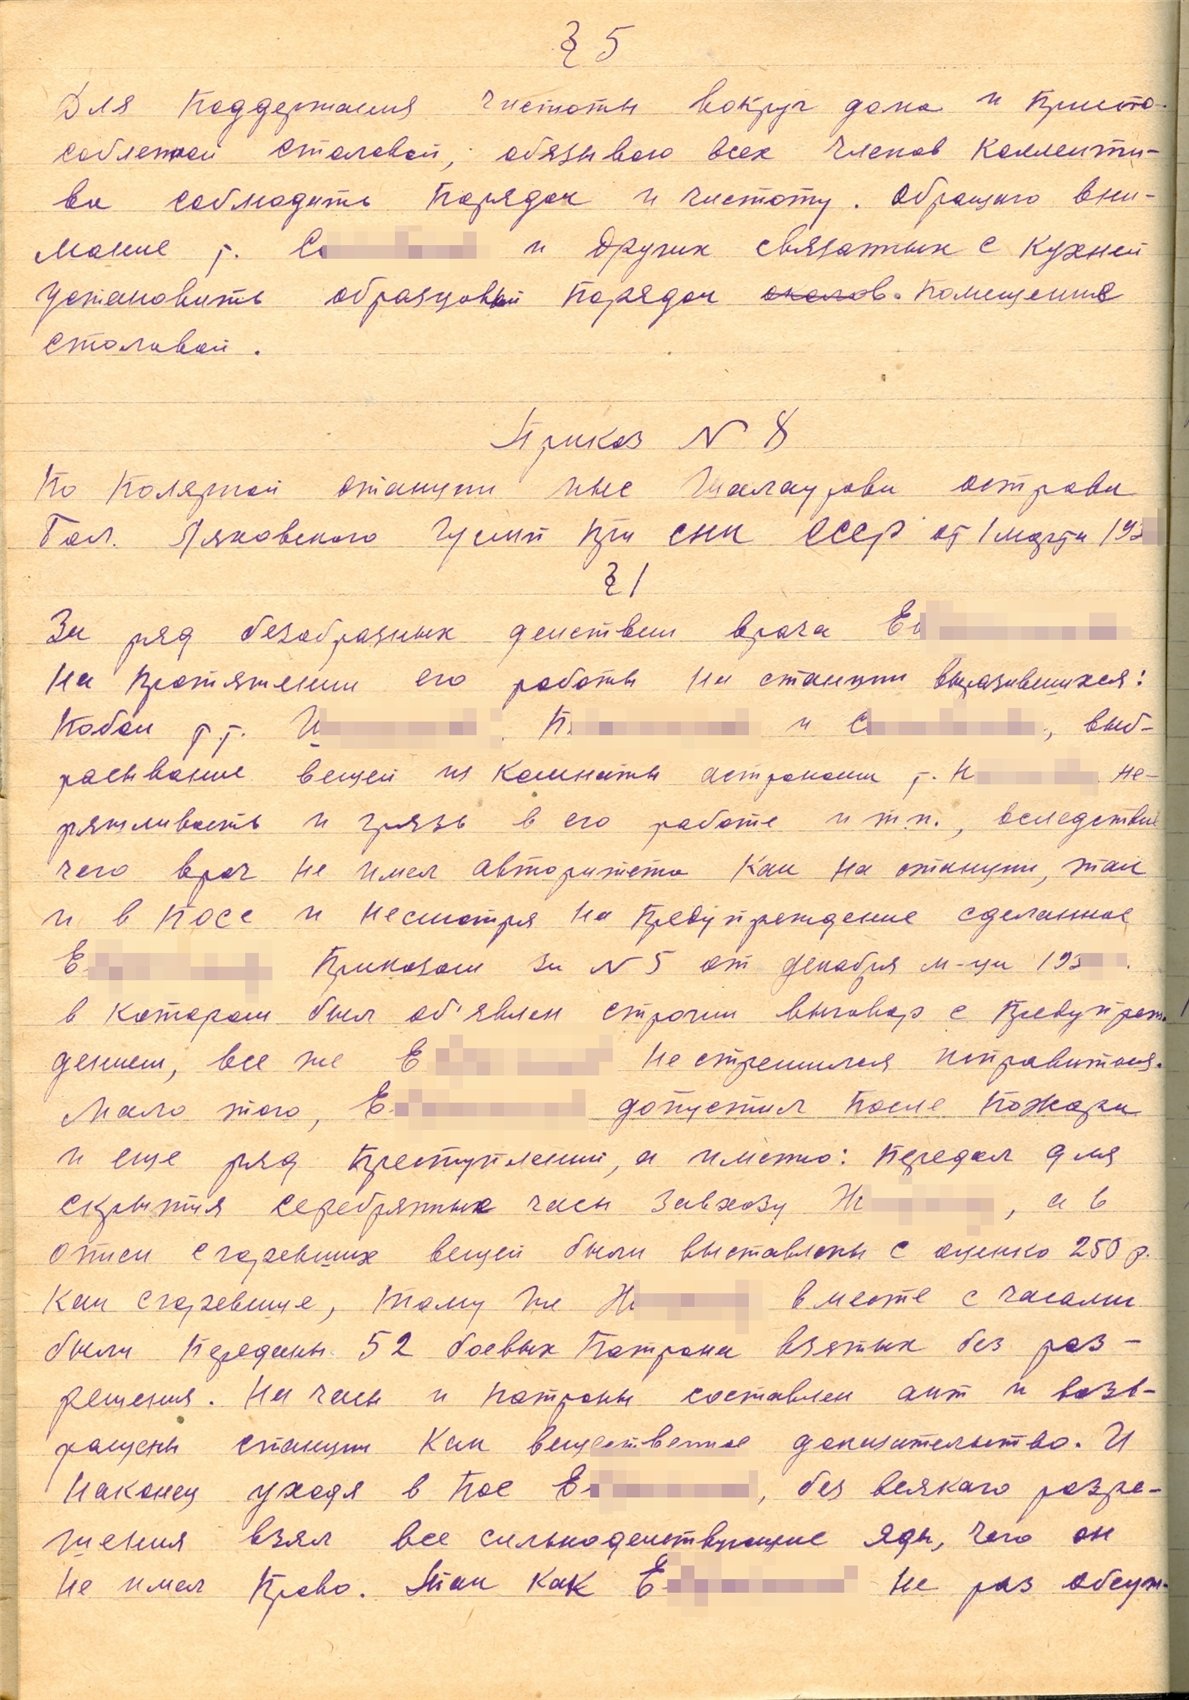 § 5
Для поддержания чистоты вокруг дома и приспо-
собленной столовой, обязываю всех членов коллекти-
ва соблюдать порядок и чистоту. Обращаю вни-
мание т. С и других связанных с кухней
установить образцовый порядок в помещение
столовой.
Приказ N 8
По полярной станции мыс Шалаурова острова
Бол. Ляховского ГУСМП при СНК СССР от 1 марта 193
§ 1
За ряд безобразных действий врача Е
на протяжении его работы на станции выразившихся:
побои т.т. , П и С , выб-
расывание вещей из комнаты астронома т. Н не-
ряшливость и грязь в его работе и т.п., вследствие
чего врач не имел авторитета как на станции, так
и в посе и несмотря на предупреждение сделанное
Е приказом за N 5 от декабря м-ца 193 .
в котором был об'явлен строгий выговор с предупреж-
дением, все же Е не стремился исправиться.
Мало того, Е допустил после пожара
и еще ряд преступлений, а именно: передал для
скрытия серебрянных часы завхозу Н , а в
описи сгоревших вещей были выставлены с оценко 250 р.
как сгоревшие, тому же Н вместе с часами
были переданы 52 боевых патрона взятых без раз-
решения. На часы и патроны составлен акт и возв-
ращены станции как вещественное доказательство. И
наконец уходя в пос Е , без всякаго разре-
шения взял все сильнодействующие яды, чего он
не имел право. Так как Е не раз обсуж-